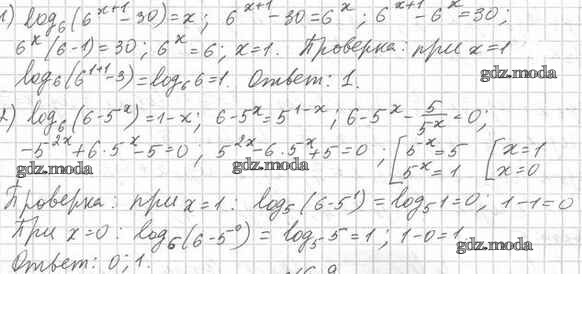 1) log₆(6^(x+1)-30)=x; 6^(x+1)-30=6^x; 6^(x+1)-6^x=30;
6^x(6-1)=30; 6^x=6; x=1. Проверка: при x=1
log₆(6^(1+1)-3)=log₆6=1. Ответ: 1.
gdz.moda
2) log₆(6-5^x)=1-x; 6-5^x=5^(1-x); 6-5^x-5/5^x=0;
-5^(2x)+6·5^x-5=0; 5^(2x)-6·5^x+5=0; [5^x=5 [x=1
5^x=1 x=0
gdz.moda gdz.moda
Проверка: при x=1: log₅(6-5¹)=log₅1=0; 1-1=0
При x=0: log₆(6-5⁰)=log₅5=1; 1-0=1.
gdz.moda
Ответ: 0; 1.